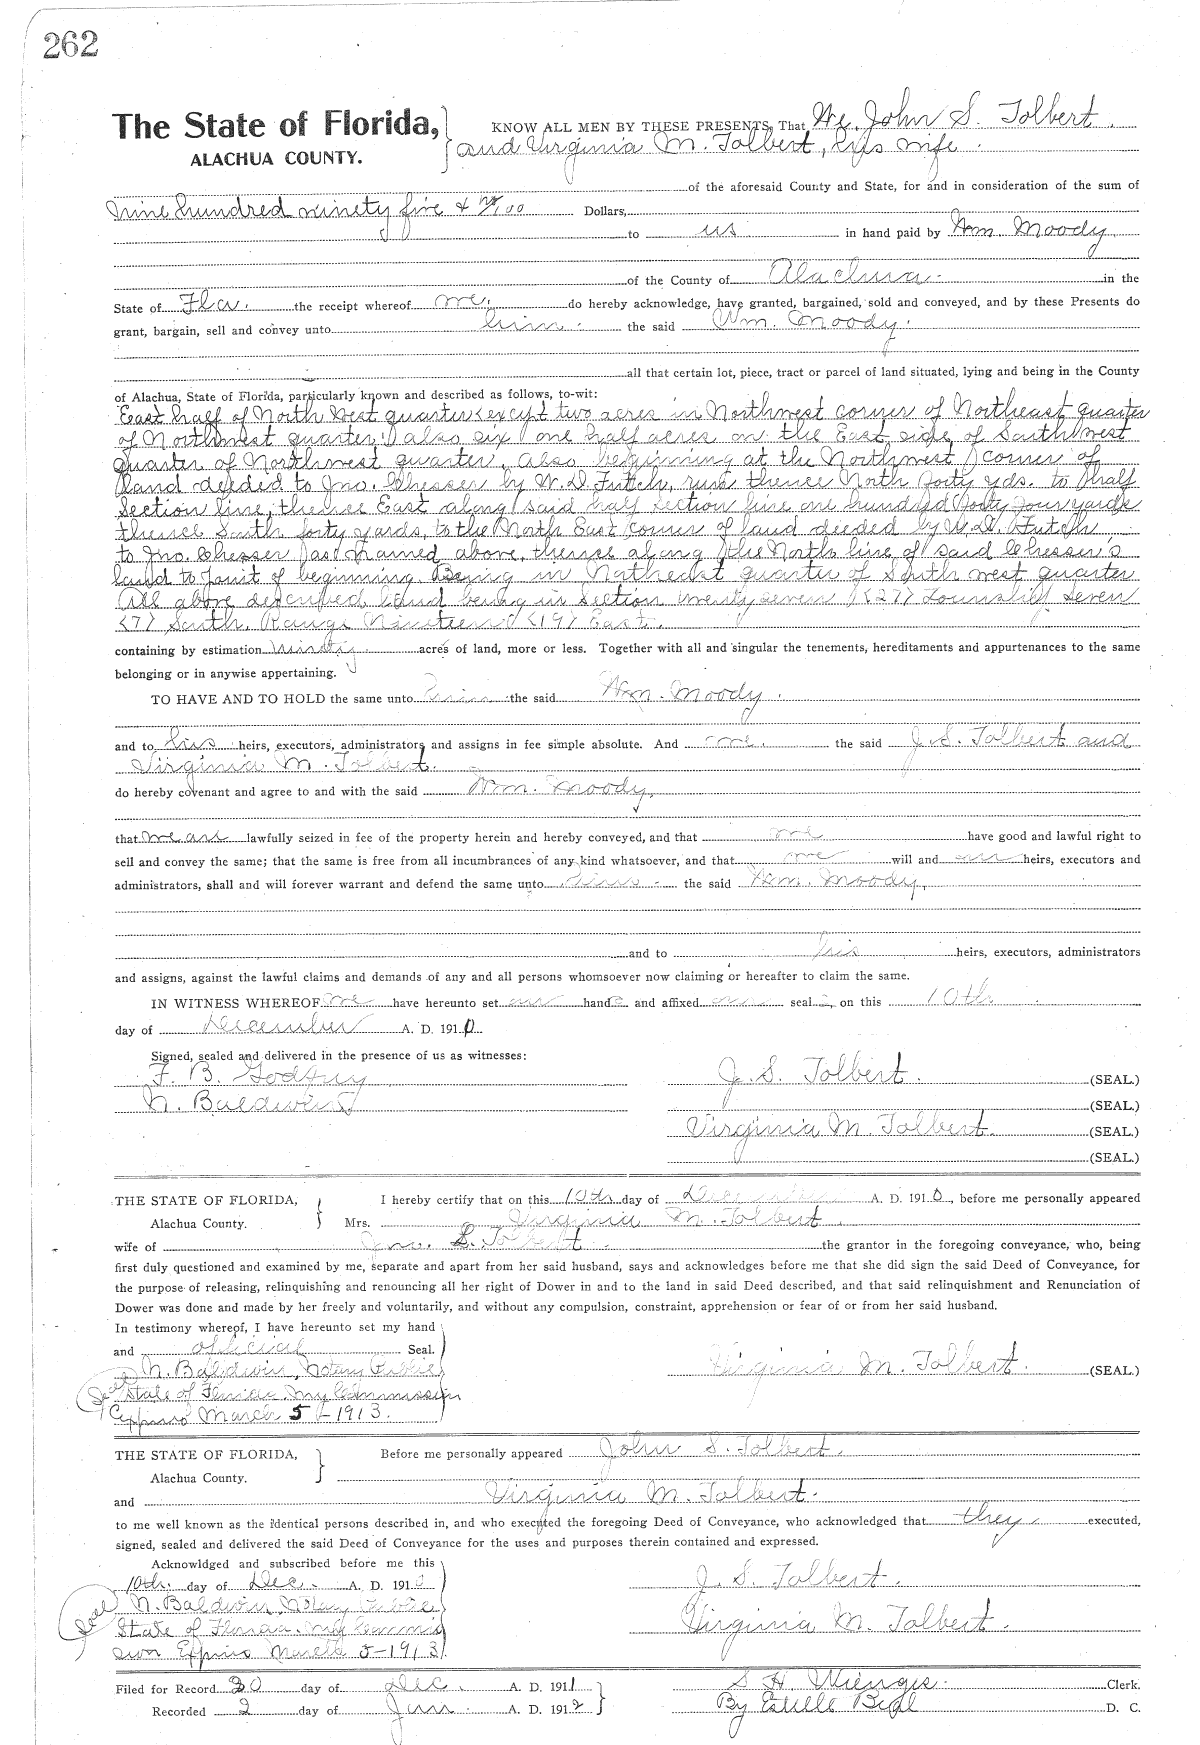 262
The State of Florida, KNOW ALL MEN BY THESE PRESENTS, That We, John S. Tolbert
ALACHUA COUNTY. and Virginia M. Tolbert, his wife
of the aforesaid County and State, for and in consideration of the sum of
Nine hundred ninety five & no/100 Dollars,
to us in hand paid by Wm. Moody
of the County of Alachua in the
State of Fla. the receipt whereof we do hereby acknowledge, have granted, bargained, sold and conveyed, and by these Presents do
grant, bargain, sell and convey unto him the said Wm. Moody.
all that certain lot, piece, tract or parcel of land situated, lying and being in the County
of Alachua, State of Florida, particularly known and described as follows, to-wit:
East half of North West quarter <except two acres in Northwest corner of Northeast quarter
of Northwest quarter> also six one half acres on the East side of Southwest
quarter of Northwest quarter, Also beginning at the Northwest corner of
land deeded to Jno. Chesser by W. D. Futch, run thence North forty yds. to half
Section line, thence East along said half section line one hundred forty four yards
thence South forty yards, to the North East corner of land deeded by W. D. Futch
to Jno. Chesser last named above, thence along the North line of said Chesser's
land to point of beginning Being in Northeast quarter of South west quarter
All above described land being in Section twenty seven <27> Township Seven
<7> South, Range Nineteen <19> East.
containing by estimation ninety acres of land, more or less. Together with all and singular the tenements, hereditaments and appurtenances to the same
belonging or in anywise appertaining.
TO HAVE AND TO HOLD the same unto him the said Wm. Moody.
and to his heirs, executors, administrators and assigns in fee simple absolute. And we the said J. S. Tolbert and
Virginia M. Tolbert.
do hereby covenant and agree to and with the said Wm. Moody,
that we are lawfully seized in fee of the property herein and hereby conveyed, and that we have good and lawful right to
sell and convey the same; that the same is free from all incumbrances of any kind whatsoever, and that we will and our heirs, executors and
administrators, shall and will forever warrant and defend the same unto him the said Wm. Moody,
and to his heirs, executors, administrators
and assigns, against the lawful claims and demands of any and all persons whomsoever now claiming or hereafter to claim the same.
IN WITNESS WHEREOF we have hereunto set our hands and affixed our seals on this 10th
day of December A. D. 1910
Signed, sealed and delivered in the presence of us as witnesses:
F. B. Godfrey J. S. Tolbert. (SEAL.)
N. Baldwin (SEAL.)
Virginia M. Tolbert. (SEAL.)
(SEAL.)
THE STATE OF FLORIDA, I hereby certify that on this 10th day of December A. D. 1910, before me personally appeared
Alachua County. Mrs. Virginia M. Tolbert
wife of Jno. S. Tolbert the grantor in the foregoing conveyance, who, being
first duly questioned and examined by me, separate and apart from her said husband, says and acknowledges before me that she did sign the said Deed of Conveyance, for
the purpose of releasing, relinquishing and renouncing all her right of Dower in and to the land in said Deed described, and that said relinquishment and Renunciation of
Dower was done and made by her freely and voluntarily, and without any compulsion, constraint, apprehension or fear of or from her said husband.
In testimony whereof, I have hereunto set my hand
and official Seal.
N. Baldwin, Notary Public Virginia M. Tolbert. (SEAL)
Seal State of Florida. My Commission
Expires March 5 - 1913.
THE STATE OF FLORIDA, Before me personally appeared John S. Tolbert.
Alachua County.
and Virginia M. Tolbert.
to me well known as the identical persons described in, and who executed the foregoing Deed of Conveyance, who acknowledged that they executed,
signed, sealed and delivered the said Deed of Conveyance for the uses and purposes therein contained and expressed.
Acknowldged and subscribed before me this
10th. day of Dec. A. D. 1910 J. S. Tolbert.
Seal N. Baldwin, Notary Public
State of Florida. My Commis Virginia M. Tolbert.
sion Expires March 5-1913.
Filed for Record 20 day of Dec. A. D. 1911 S. H. Wienges. Clerk.
Recorded 2 day of Jan. A. D. 1912 By Estelle D. C.